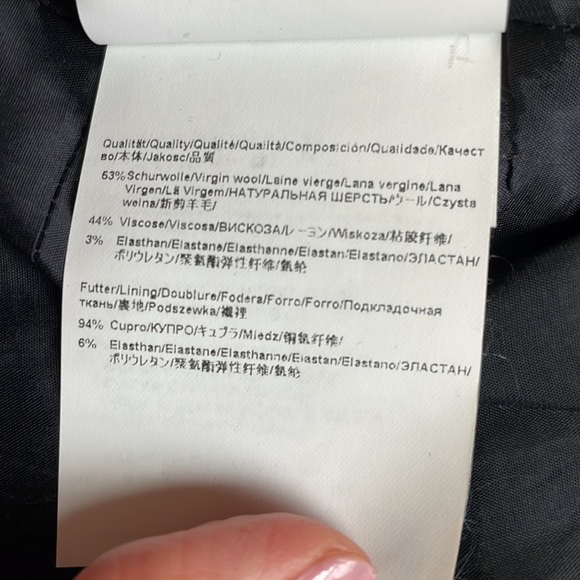 Qualität/Quality/Qualité/Qualità/Composición/Qualidade/Качест
во/本体/Jakosc/品質
53% Schurwolle/Virgin wool/Laine vierge/Lana vergine/Lana
Virgen/Lã Virgem/НАТУРАЛЬНАЯ ШЕРСТЬ/ウール/Czysta
welna/新剪羊毛/
44% Viscose/Viscosa/ВИСКОЗА/レーヨン/Wiskoza/粘胶纤维/
3% Elasthan/Elastane/Elasthanne/Elastan/Elastano/ЭЛАСТАН/
ポリウレタン/聚氨酯弹性纤维/氨纶
Futter/Lining/Doublure/Fodera/Forro/Forro/Подкладочная
ткань/裏地/Podszewka/襯裡
94% Cupro/КУПРО/キュプラ/Miedz/铜氨纤维/
6% Elasthan/Elastane/Elasthanne/Elastan/Elastano/ЭЛАСТАН/
ポリウレタン/聚氨酯弹性纤维/氨纶